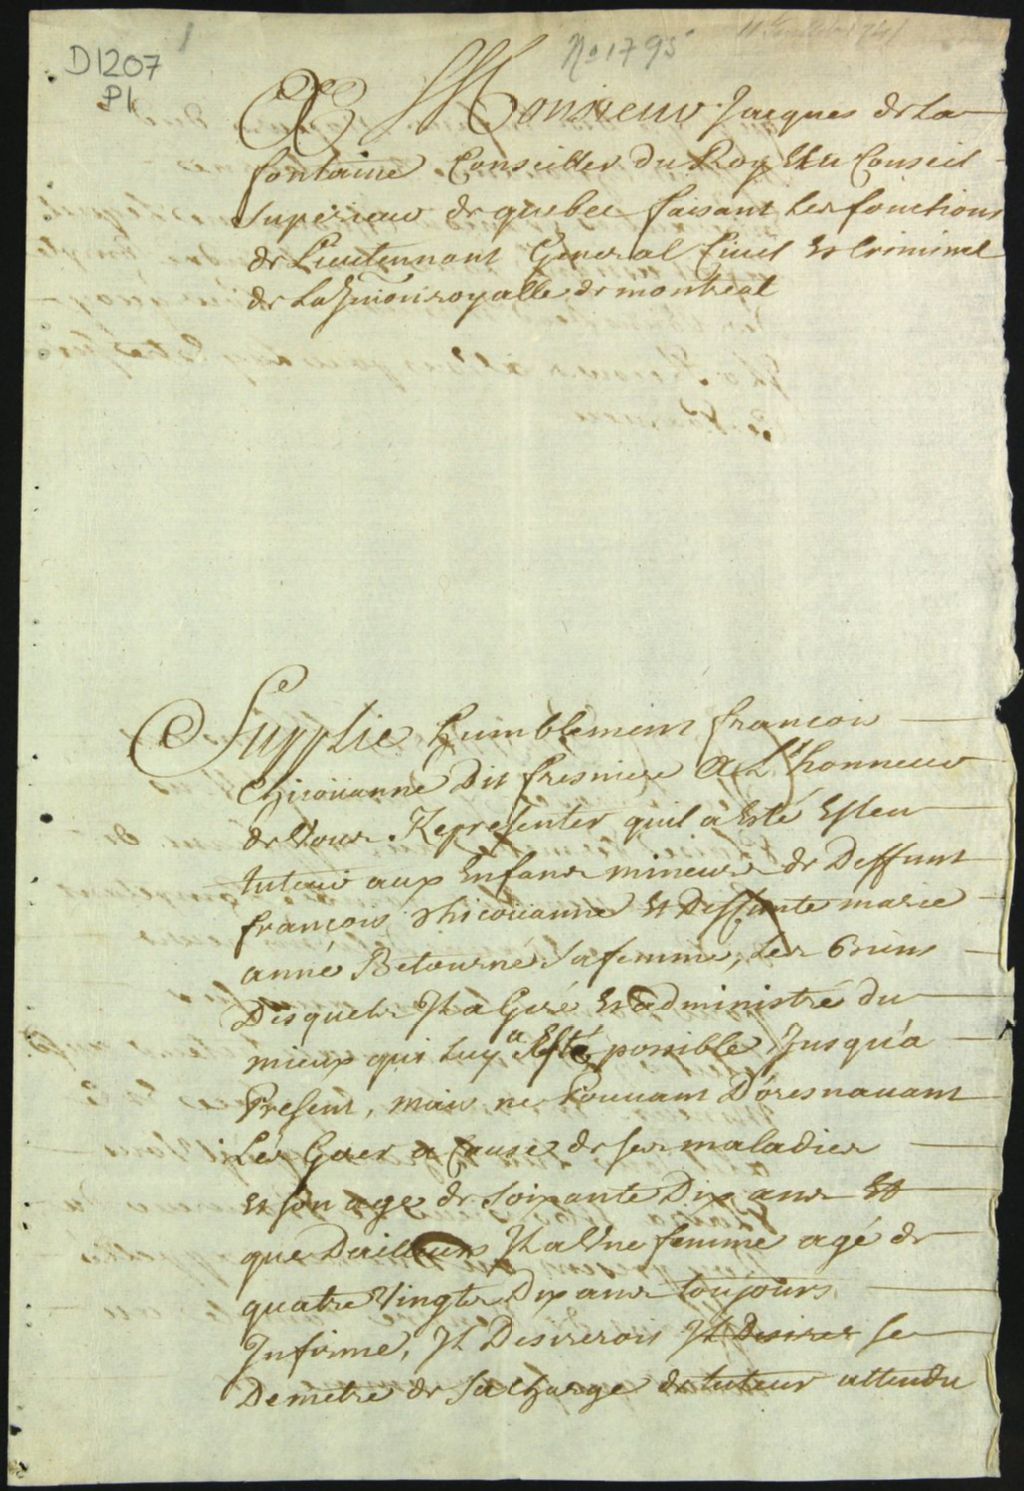 D1207
P1
No 1795
A Monsieur Jacques de La
fontaine Conseiller du Roy Au Conseil
Superieur de quebec faisant les fonctions
de Lieutennant General Civil Et Criminel
de La royalle de montreal
Supplie humblement francois
Chicoüanne Dit fresniere a L'honneur
de Vous Representer quil à Esté Esleu
tuteur aux Enfans mineurs de Deffunt
francois chicoüanne Et Deffunte marie
anné Retourné Sa femme, les biens
Desquels Il a Geré Et administré du
mieux qui Luy a Esté possible Jusqu'a
Present, mais ne Pouvant D'oresnavant
Les Gerer a Cause de ses maladies
Et son age de soixante Dix ans Et
que Dailleurs Il a Une femme agé de
quatre Vingts Dix ans toujours
Infirme, Il Desireroit Il Desires se
Demetre de Sa charge de tuteur attendu